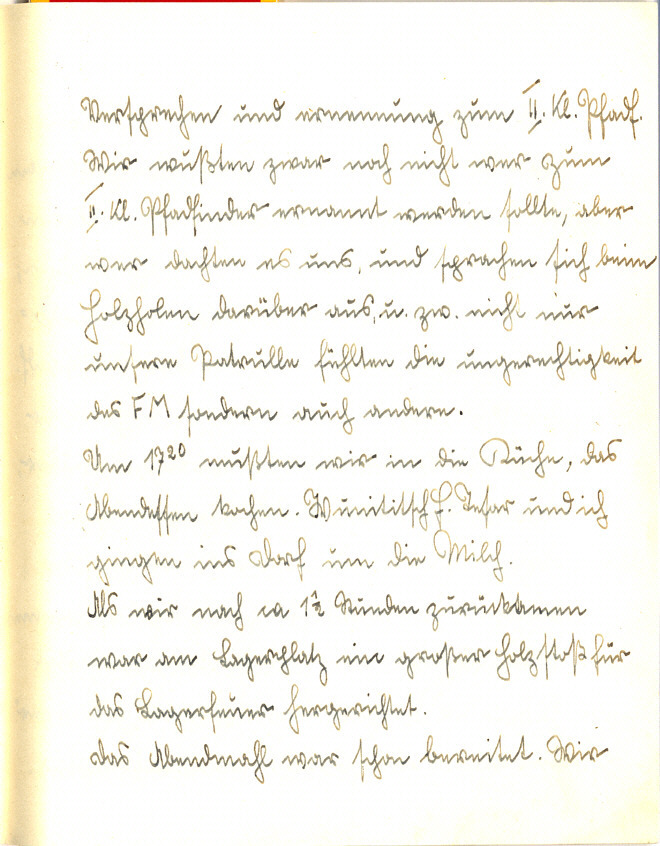 Versprechen und ernennung zum II. Kl. Pfadf.
Wir wußten zwar noch nicht wer zum
II. Kl. Pfadfinder ernannt werden sollte, aber
wer dachten es uns, und sprachen sich beim
Holzholen darüber aus, u. zw. nicht nur
unsere Patrulle fühlten die ungerechtigkeit
des FM sondern auch andere.
Um 17²⁰ mußten wir in die Küche, das
Abendessen kochen. Wunititsch H. Tesar und ich
gingen ins Dorf um die Milch.
Als wir nach ca 1½ Stunden zurückkamen
war am Lagerplatz ein großer Holzstoß für
das Lagerfeuer hergerichtet.
Das Abendmahl war schon bereitet. Wir